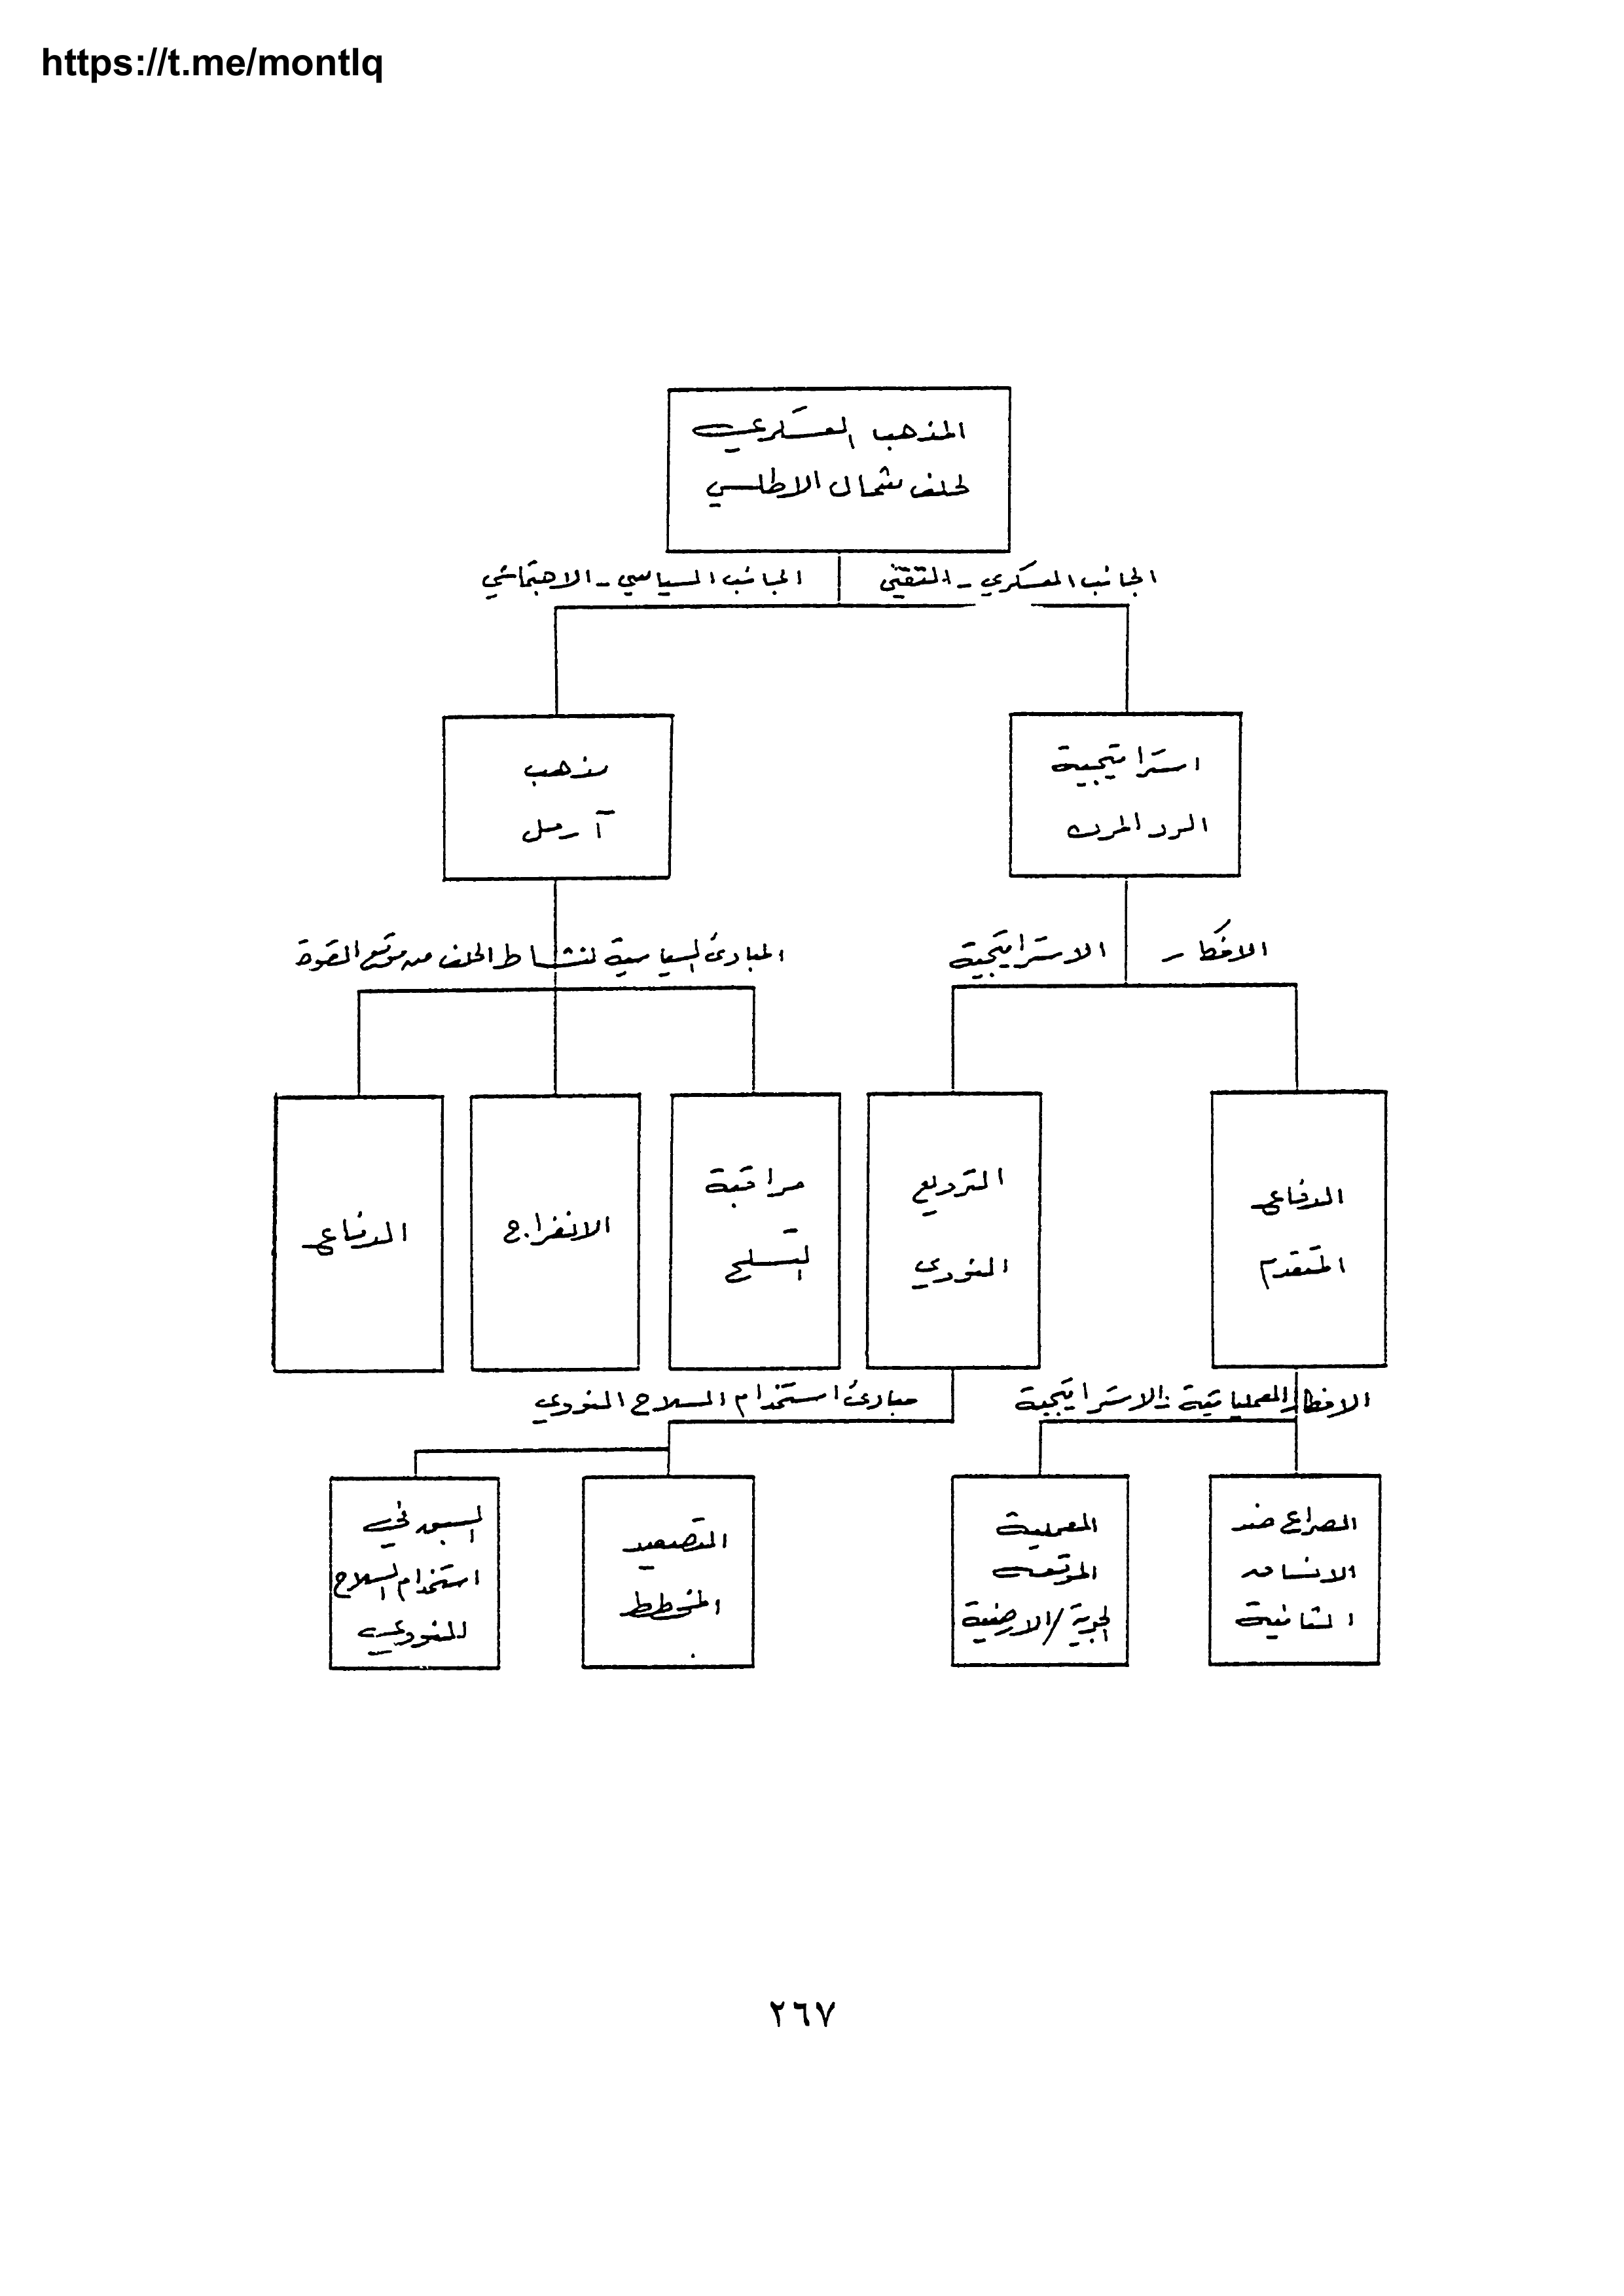 https://t.me/montlq
المذهب العسكري
لحلف شمال الاطلسي
الجانب العسكري - التقني
الجانب السياسي - الاجتماعي
استراتيجية
الرد المرن
مذهب
آرمل
الافكار الاستراتيجية
المبادئ السياسية لنشاط الحلف من موقع القوة
الدفاع
المتقدم
الترديع
النووي
مراقبة
التسلح
الانفراج
الدفاع
الافكار العملياتية - الاستراتيجية
مبادئ استخدام السلاح النووي
الصراع ضد
الانساق
الثانية
العملية
الجوية/الارضية
التصعيد
المخطط
السبق في
استخدام السلاح
النووي
٢٦٧